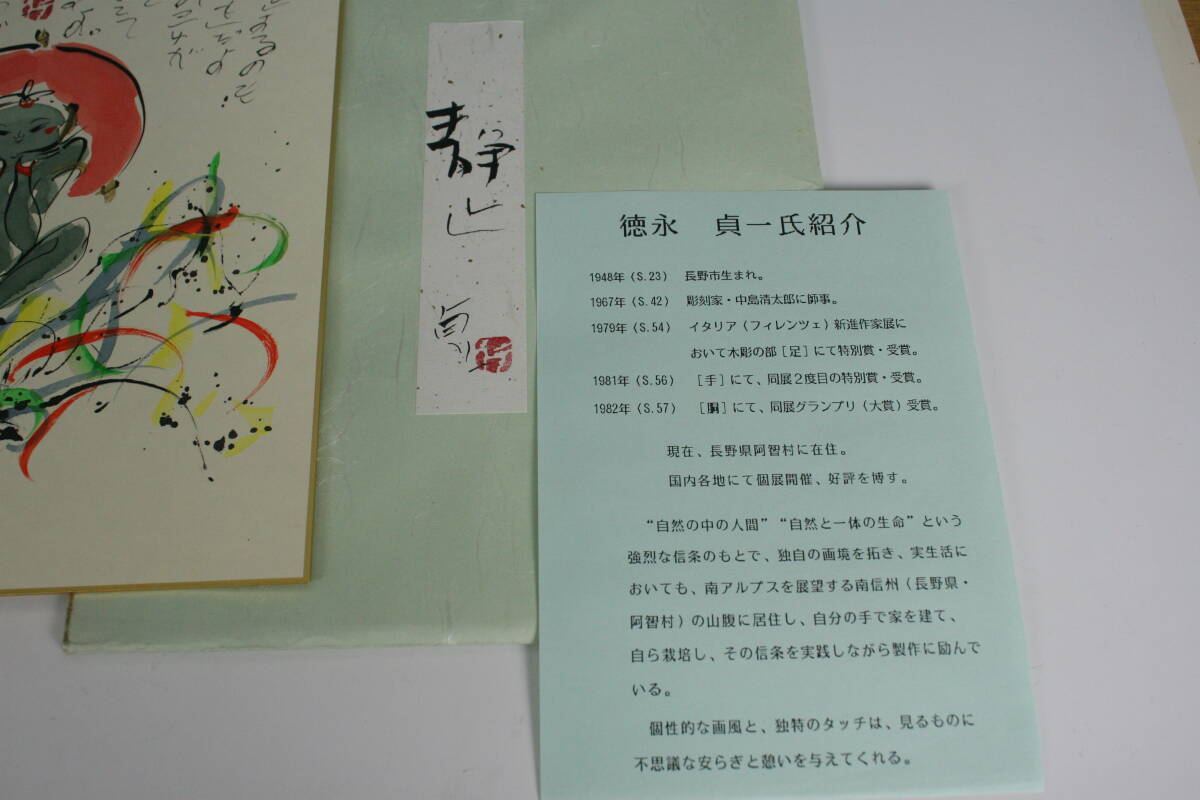 静心
貞
徳永　貞一氏紹介
1948年（S.23）　長野市生まれ。
1967年（S.42）　彫刻家・中島清太郎に師事。
1979年（S.54）　イタリア（フィレンツェ）新進作家展に
おいて木彫の部［足］にて特別賞・受賞。
1981年（S.56）　［手］にて、同展２度目の特別賞・受賞。
1982年（S.57）　［胴］にて、同展グランプリ（大賞）受賞。
現在、長野県阿智村に在住。
国内各地にて個展開催、好評を博す。
“自然の中の人間”“自然と一体の生命”という
強烈な信条のもとで、独自の画境を拓き、実生活に
おいても、南アルプスを展望する南信州（長野県・
阿智村）の山腹に居住し、自分の手で家を建て、
自ら栽培し、その信条を実践しながら製作に励んで
いる。
個性的な画風と、独特のタッチは、見るものに
不思議な安らぎと憩いを与えてくれる。